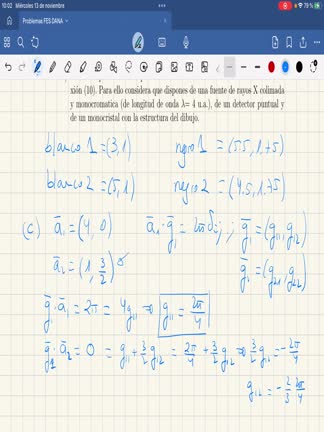 10:02 Miércoles 13 de noviembre
79 %
Problemas FES DANA
xión (10). Para ello considera que dispones de una fuente de rayos X colimada
y monocromatica (de longitud de onda λ= 4 u.a.), de un detector puntual y
de un monocristal con la estructura del dibujo.
blanco 1 = (3,1) negro 1 = (5.5, 1.75)
blanco 2 = (5,1) negro 2 = (4.5, 1.75)
(c) ā₁ = (4, 0) ā₁·ḡⱼ = 2πδᵢ,ⱼ ḡ₁ = (g₁₁, g₁₂)
ā₂ = (1, 3/2) ḡ₂ = (g₂₁, g₂₂)
ḡ₁·ā₁ = 2π = 4g₁₁ ⇒ g₁₁ = 2π/4
ḡ₁·ā₂ = 0 = g₁₁ + 3/2 g₁₂ = 2π/4 + 3/2 g₁₂ ⇒ 3/2 g₁₂ = - 2π/4
g₁₂ = - 2/3 2π/4